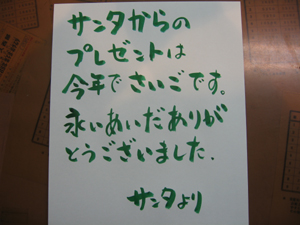 サンタからの
プレゼントは
今年でさいごです。
永いあいだありが
とうございました.
サンタより